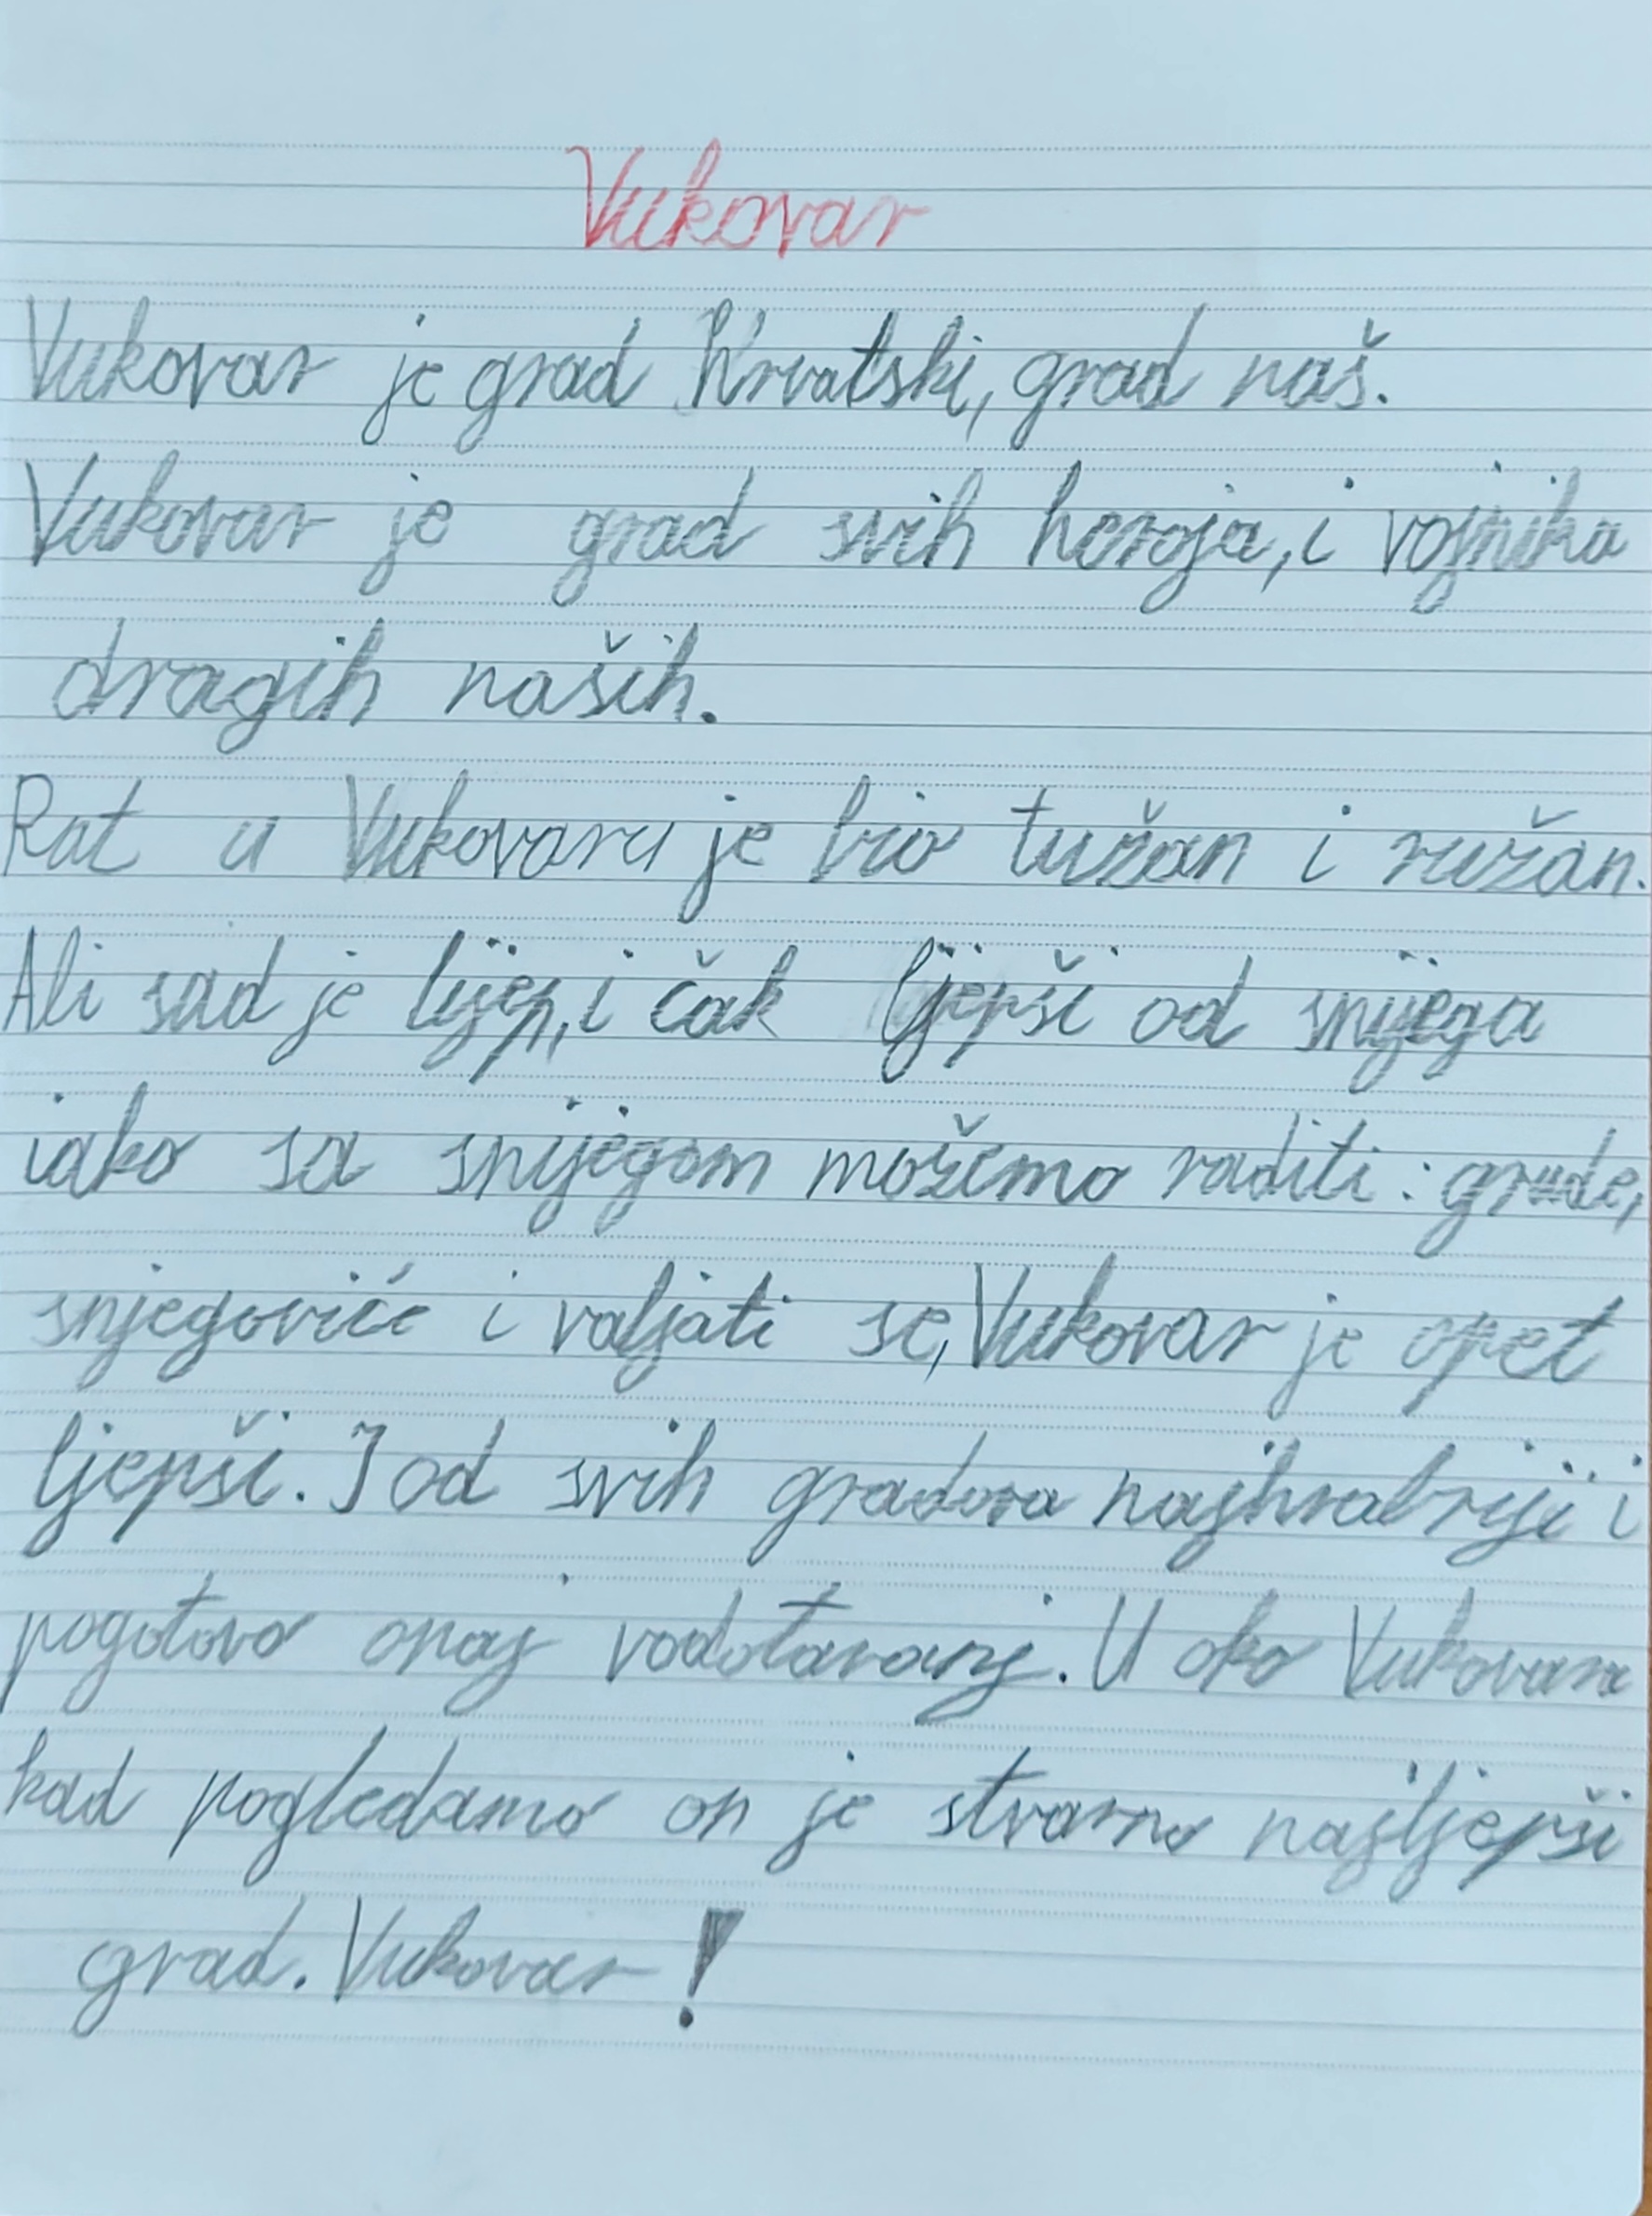 Vukovar
Vukovar je grad Hrvatski, grad naš.
Vukovar je grad svih heroja, i vojnika
dragih naših.
Rat u Vukovaru je bio tužan i ružan.
Ali sad je lijep, i čak ljepši od snijega
iako sa snijegom možemo raditi : grude,
snjegoviće i valjati se, Vukovar je opet
ljepši. I od svih gradova najhrabriji i
pogotovo onaj vodotaranj. U oko Vukovara
kad pogledamo on je stvarno najljepši
grad. Vukovar!